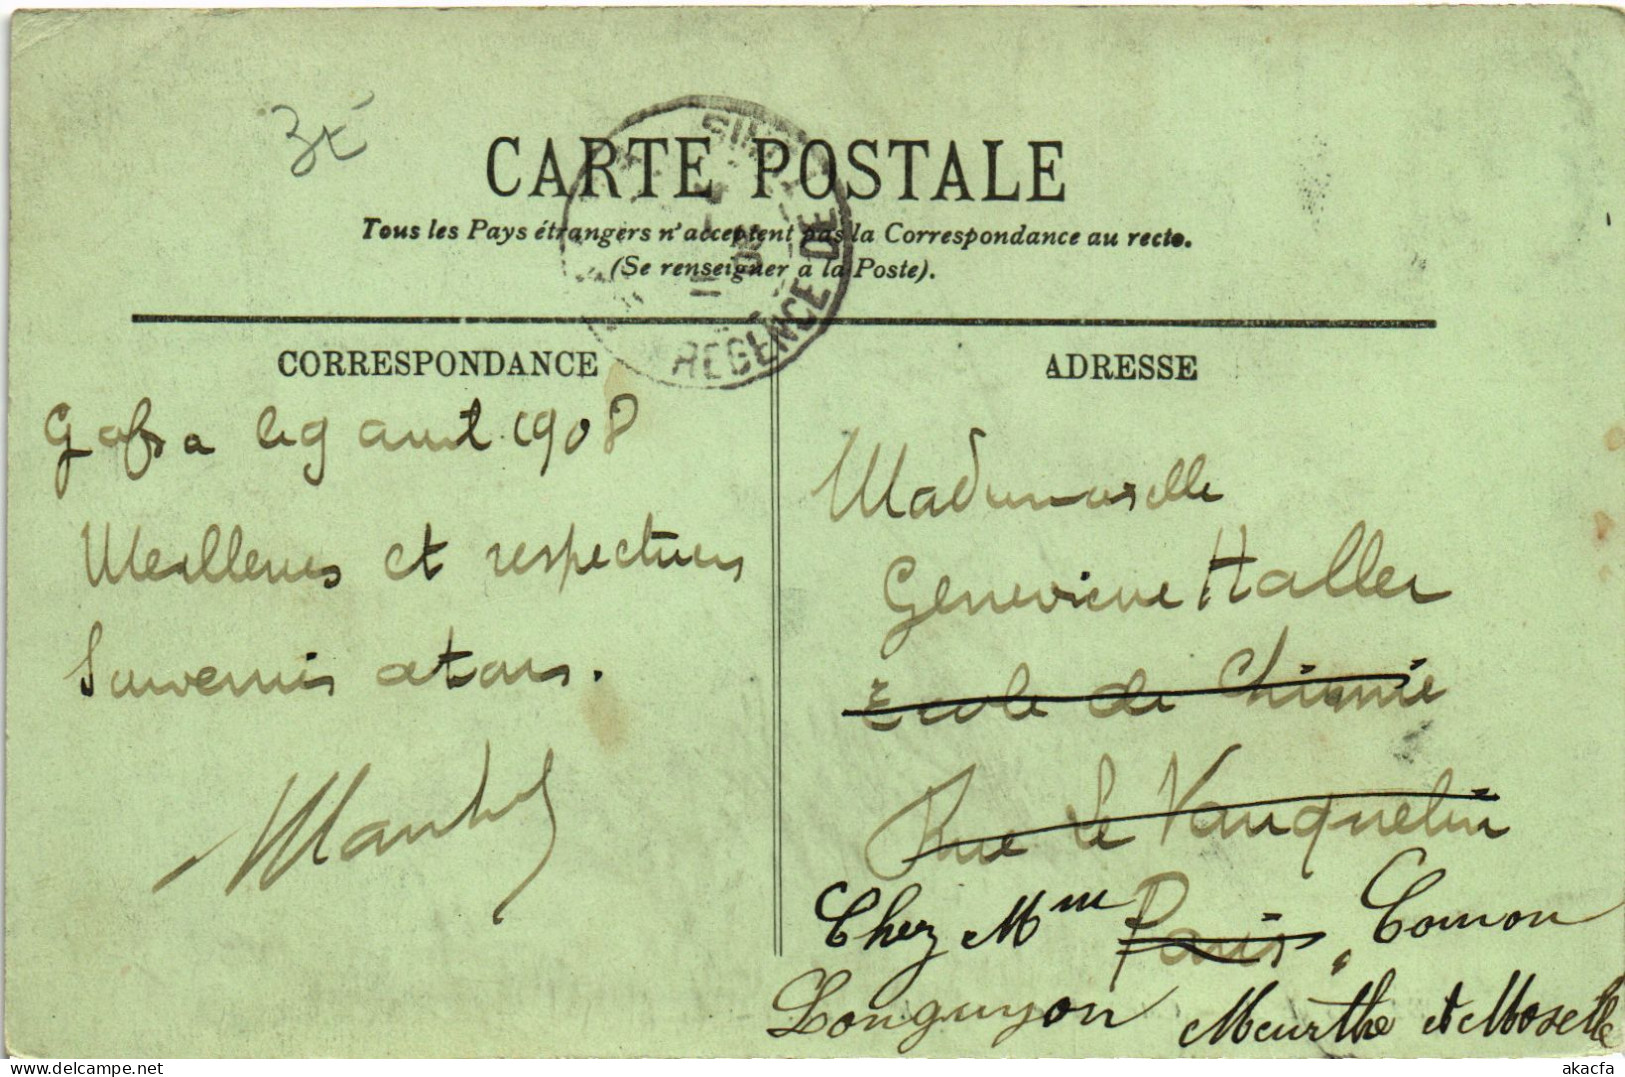 3t
CARTE POSTALE
Tous les Pays étrangers n'acceptent pas la Correspondance au recto.
(Se renseigner à la Poste).
REGENCE DE
08
CORRESPONDANCE
Gafsa le 9 aout 1908
Meilleurs et respectueux
Souvenirs a tous.
ADRESSE
Mademoiselle
Genevieve Haller
Ecole de Chimie
Rue le Vauquelin
Paris
Chez Mme Comon
Longuyon Meurthe et Moselle
akacfa